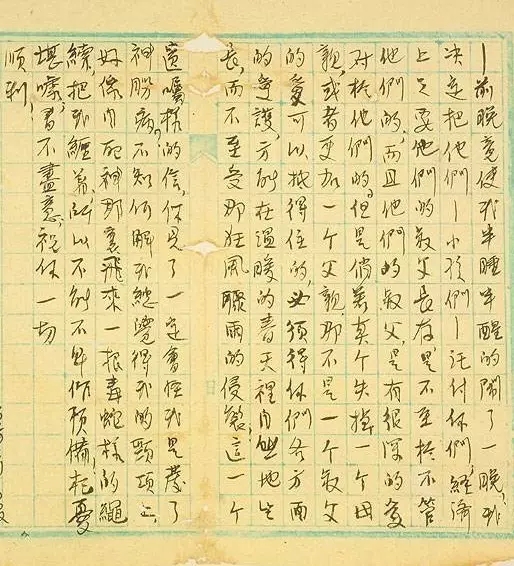 —前晚竟使我半睡半醒的鬧了一晚,我
决定把他們—小孩們—託付你們,經濟
上只要他們的叔父長存,是不至於不管
他們的,而且他們的叔父,是有很深的愛
对於他們的。但是倘若真个失掉一个母
親,或者更加一个父親,那不是一个叔父
的愛可以抵得住的,必須得你們各方面
的愛護,方能在温暖的春天裡自然地生
長,而不至受那狂風驟雨的侵襲。這一个
遺囑樣的信,你見了一定會怪我是發了
神經病,不知何解,我總覺得我的頸項上,
好像自死神那裏飛來一根毒蛇樣的繩
索,把我纏着,所以不能不早作預備,杞憂
堪嚎,書不盡意,祝你一切
順利!